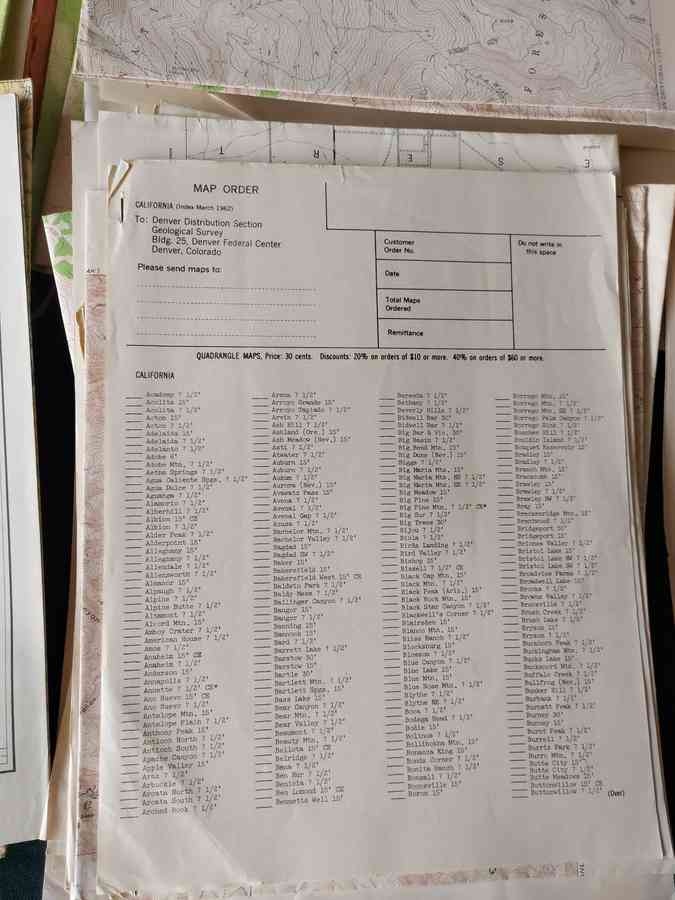 MAP ORDER
CALIFORNIA (Index March 1962)
To: Denver Distribution Section
Geological Survey
Bldg. 25, Denver Federal Center
Denver, Colorado
Please send maps to:
Customer
Order No.
Date
Total Maps
Ordered
Remittance
Do not write in
this space
QUADRANGLE MAPS, Price: 30 cents. Discounts: 20% on orders of $10 or more. 40% on orders of $60 or more.
CALIFORNIA
Academy 7 1/2'
Acolita 15'
Acolita 7 1/2'
Acton 15'
Acton 7 1/2'
Adelaida 15'
Adelaida 7 1/2'
Adelanto 7 1/2'
Adobe 6'
Adobe Mtn. 7 1/2'
Aetna Springs 7 1/2'
Agua Caliente Spgs. 7 1/2'
Agua Dulce 7 1/2'
Aguanga 7 1/2'
Alamorio 7 1/2'
Alberhill 7 1/2'
Albion 15' CE
Albion 7 1/2'
Alder Peak 7 1/2'
Alderpoint 15'
Alleghany 15'
Alleghany 7 1/2'
Allendale 7 1/2'
Allensworth 7 1/2'
Almanor 15'
Alpaugh 7 1/2'
Alpine 7 1/2'
Alpine Butte 7 1/2'
Altamont 7 1/2'
Alvord Mtn. 15'
Amboy Crater 7 1/2'
American House 7 1/2'
Amos 7 1/2'
Anaheim 15' CE
Anaheim 7 1/2'
Anderson 15'
Annapolis 7 1/2'
Annette 7 1/2' CE*
Ano Nuevo 15' CE
Ano Nuevo 7 1/2'
Antelope Mtn. 15'
Antelope Plain 7 1/2'
Anthony Peak 15'
Antioch North 7 1/2'
Antioch South 7 1/2'
Apache Canyon 7 1/2'
Apple Valley 15'
Araz 7 1/2'
Arbuckle 7 1/2'
Arcata North 7 1/2'
Arcata South 7 1/2'
Arched Rock 7 1/2'
Arena 7 1/2'
Arroyo Grande 15'
Arroyo Tapiado 7 1/2'
Arvin 7 1/2'
Ash Hill 7 1/2'
Ashland (Ore.) 15'
Ash Meadow (Nev.) 15'
Asti 7 1/2'
Atwater 7 1/2'
Auburn 15'
Auburn 7 1/2'
Aukum 7 1/2'
Aurora (Nev.) 15'
Avawatz Pass 15'
Avena 7 1/2'
Avenal 7 1/2'
Avenal Gap 7 1/2'
Azusa 7 1/2'
Bachelor Mtn. 7 1/2'
Bachelor Valley 7 1/2'
Bagdad 15'
Bagdad SW 7 1/2'
Baker 15'
Bakersfield 15'
Bakersfield West 15' CE
Baldwin Park 7 1/2'
Baldy Mesa 7 1/2'
Ballinger Canyon 7 1/2'
Bangor 15'
Bangor 7 1/2'
Banning 15'
Bannock 15'
Bard 7 1/2'
Barrett Lake 7 1/2'
Barstow 30'
Barstow 15'
Bartle 30'
Bartlett Mtn. 7 1/2'
Bartlett Spgs. 15'
Bass Lake 15'
Bear Canyon 7 1/2'
Bear Mtn. 7 1/2'
Bear Valley 7 1/2'
Beaumont 7 1/2'
Beauty Mtn. 7 1/2'
Bellota 15' CE
Belridge 7 1/2'
Bena 7 1/2'
Ben Hur 7 1/2'
Benicia 7 1/2'
Ben Lomond 15' CE
Bennetts Well 15'
Berenda 7 1/2'
Bethany 7 1/2'
Beverly Hills 7 1/2'
Bidwell Bar 30'
Bidwell Bar 7 1/2'
Big Bar & Vic. 30'
Big Basin 7 1/2'
Big Bend Mtn. 15'
Big Dune (Nev.) 15'
Biggs 7 1/2'
Big Maria Mts. 15'
Big Maria Mts. NE 7 1/2'
Big Maria Mts. SE 7 1/2'
Big Meadow 15'
Big Pine 15'
Big Pine Mtn. 7 1/2' CE*
Big Sur 7 1/2'
Big Trees 30'
Bijou 7 1/2'
Biola 7 1/2'
Birds Landing 7 1/2'
Bird Valley 7 1/2'
Bishop 15'
Bissell 7 1/2' CE
Black Cap Mtn. 15'
Black Mtn. 7 1/2'
Black Peak (Ariz.) 15'
Black Rock Mtn. 15'
Black Star Canyon 7 1/2'
Blackwell's Corner 7 1/2'
Blairsden 15'
Blanco Mtn. 15'
Bliss Ranch 7 1/2'
Blocksburg 15'
Blossom 7 1/2'
Blue Canyon 7 1/2'
Blue Lake 15'
Blue Mtn. 15'
Blue Nose Mtn. 7 1/2'
Blythe 7 1/2'
Blythe NE 7 1/2'
Boca 7 1/2'
Bodega Head 7 1/2'
Bodie 15'
Bolinas 7 1/2'
Bollibokka Mtn. 15'
Bonanza King 15'
Bonds Corner 7 1/2'
Bonita Ranch 7 1/2'
Bonsall 7 1/2'
Boonville 15'
Boron 15'
Borrego Mtn. 15'
Borrego Mtn. 7 1/2'
Borrego Mtn. SE 7 1/2'
Borrego Palm Canyon 7 1/2'
Borrego Sink 7 1/2'
Boucher Hill 7 1/2'
Bouldin Island 7 1/2'
Bouquet Reservoir 15'
Bradley 15'
Bradley 7 1/2'
Branch Mtn. 15'
Branscomb 15'
Brawley 15'
Brawley 7 1/2'
Brawley NW 7 1/2'
Bray 15'
Breckenridge Mtn. 15'
Brentwood 7 1/2'
Bridgeport 30'
Bridgeport 15'
Briones Valley 7 1/2'
Bristol Lake 15'
Bristol Lake NW 7 1/2'
Bristol Lake SW 7 1/2'
Broadview Farms 7 1/2'
Broadwell Lake 15'
Brooks 7 1/2'
Browns Valley 7 1/2'
Brownsville 7 1/2'
Brush Creek 7 1/2'
Brush Lake 7 1/2'
Bryson 15'
Bryson 7 1/2'
Buckhorn Peak 7 1/2'
Buckingham Mtn. 7 1/2'
Bucks Lake 15'
Buckscord Mtn. 7 1/2'
Buffalo Creek 7 1/2'
Bullfrog (Nev.) 15'
Bunker Hill 7 1/2'
Burbank 7 1/2'
Burnett Peak 7 1/2'
Burney 30'
Burney 15'
Burnt Peak 7 1/2'
Burrell 7 1/2'
Burris Park 7 1/2'
Burro Mtn. 7 1/2'
Butte City 15'
Butte City 7 1/2'
Butte Meadows 15'
Buttonwillow 15' CE
Buttonwillow 7 1/2'
(Over)